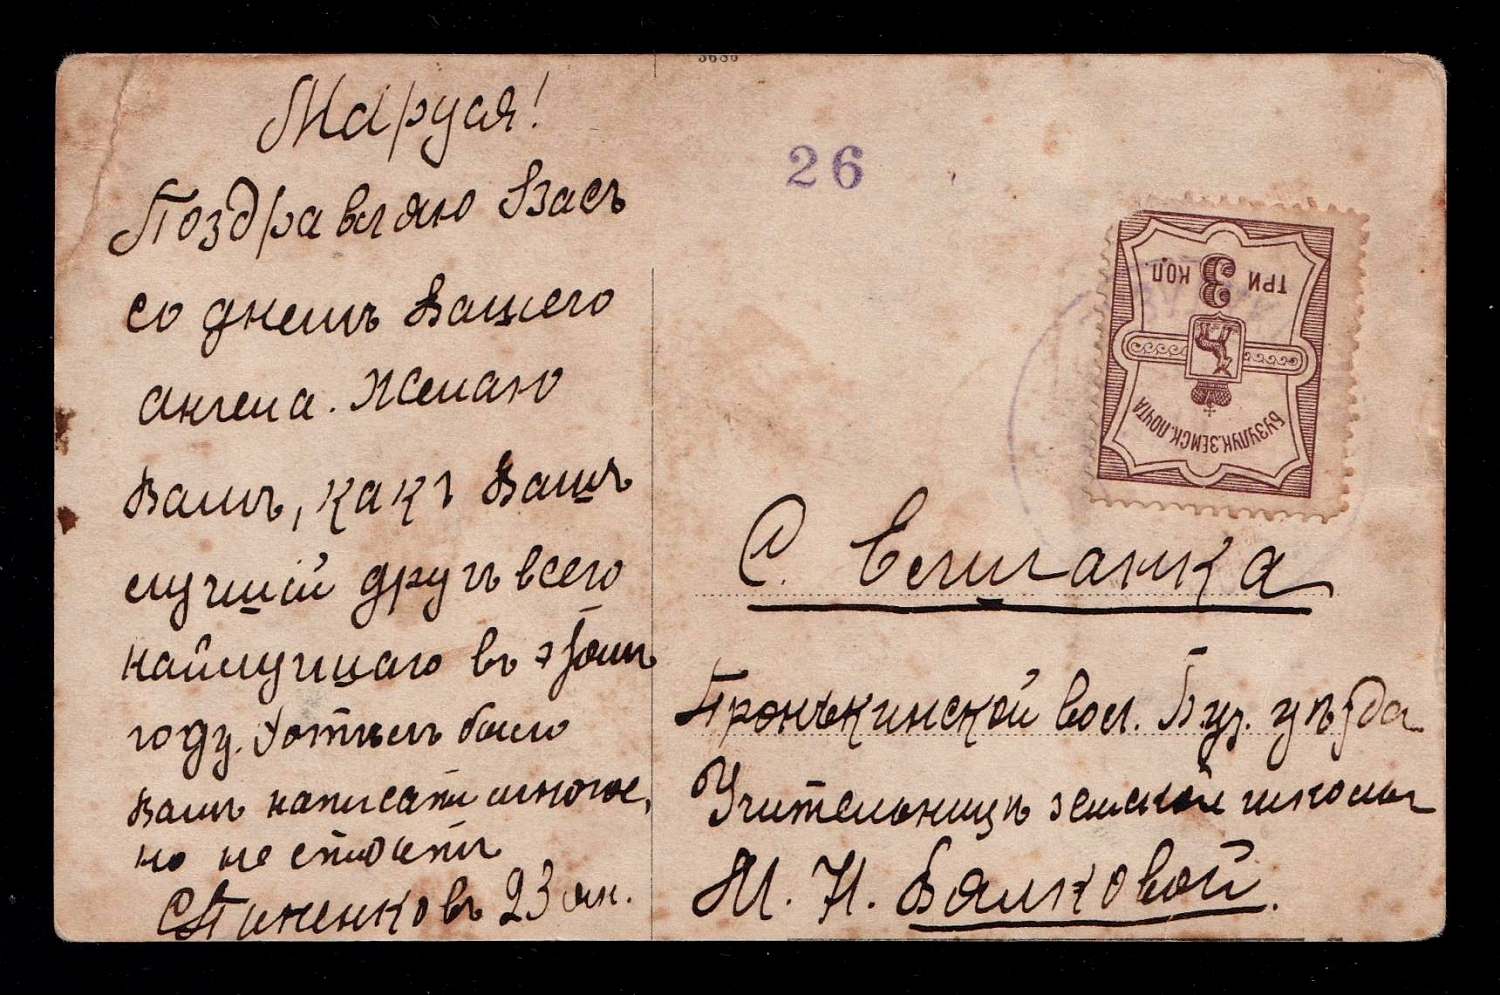 Маруся!
Поздравляю Васъ
со днемъ Вашего
ангела. Желаю
Вамъ, какъ Вашъ
лучшій другъ всего
наилучшаго въ этомъ
году. Хотѣлъ было
Вамъ написать многое,
но не
23 ян.
3686
26
ТРИ 3 КОП
БУЗУЛУК. ЗЕМСК. ПОЧТА
С. Елшанка
Пронькинской вол. Буз. уѣзда
Учительницѣ земской школы
М. Н. Бялковой.